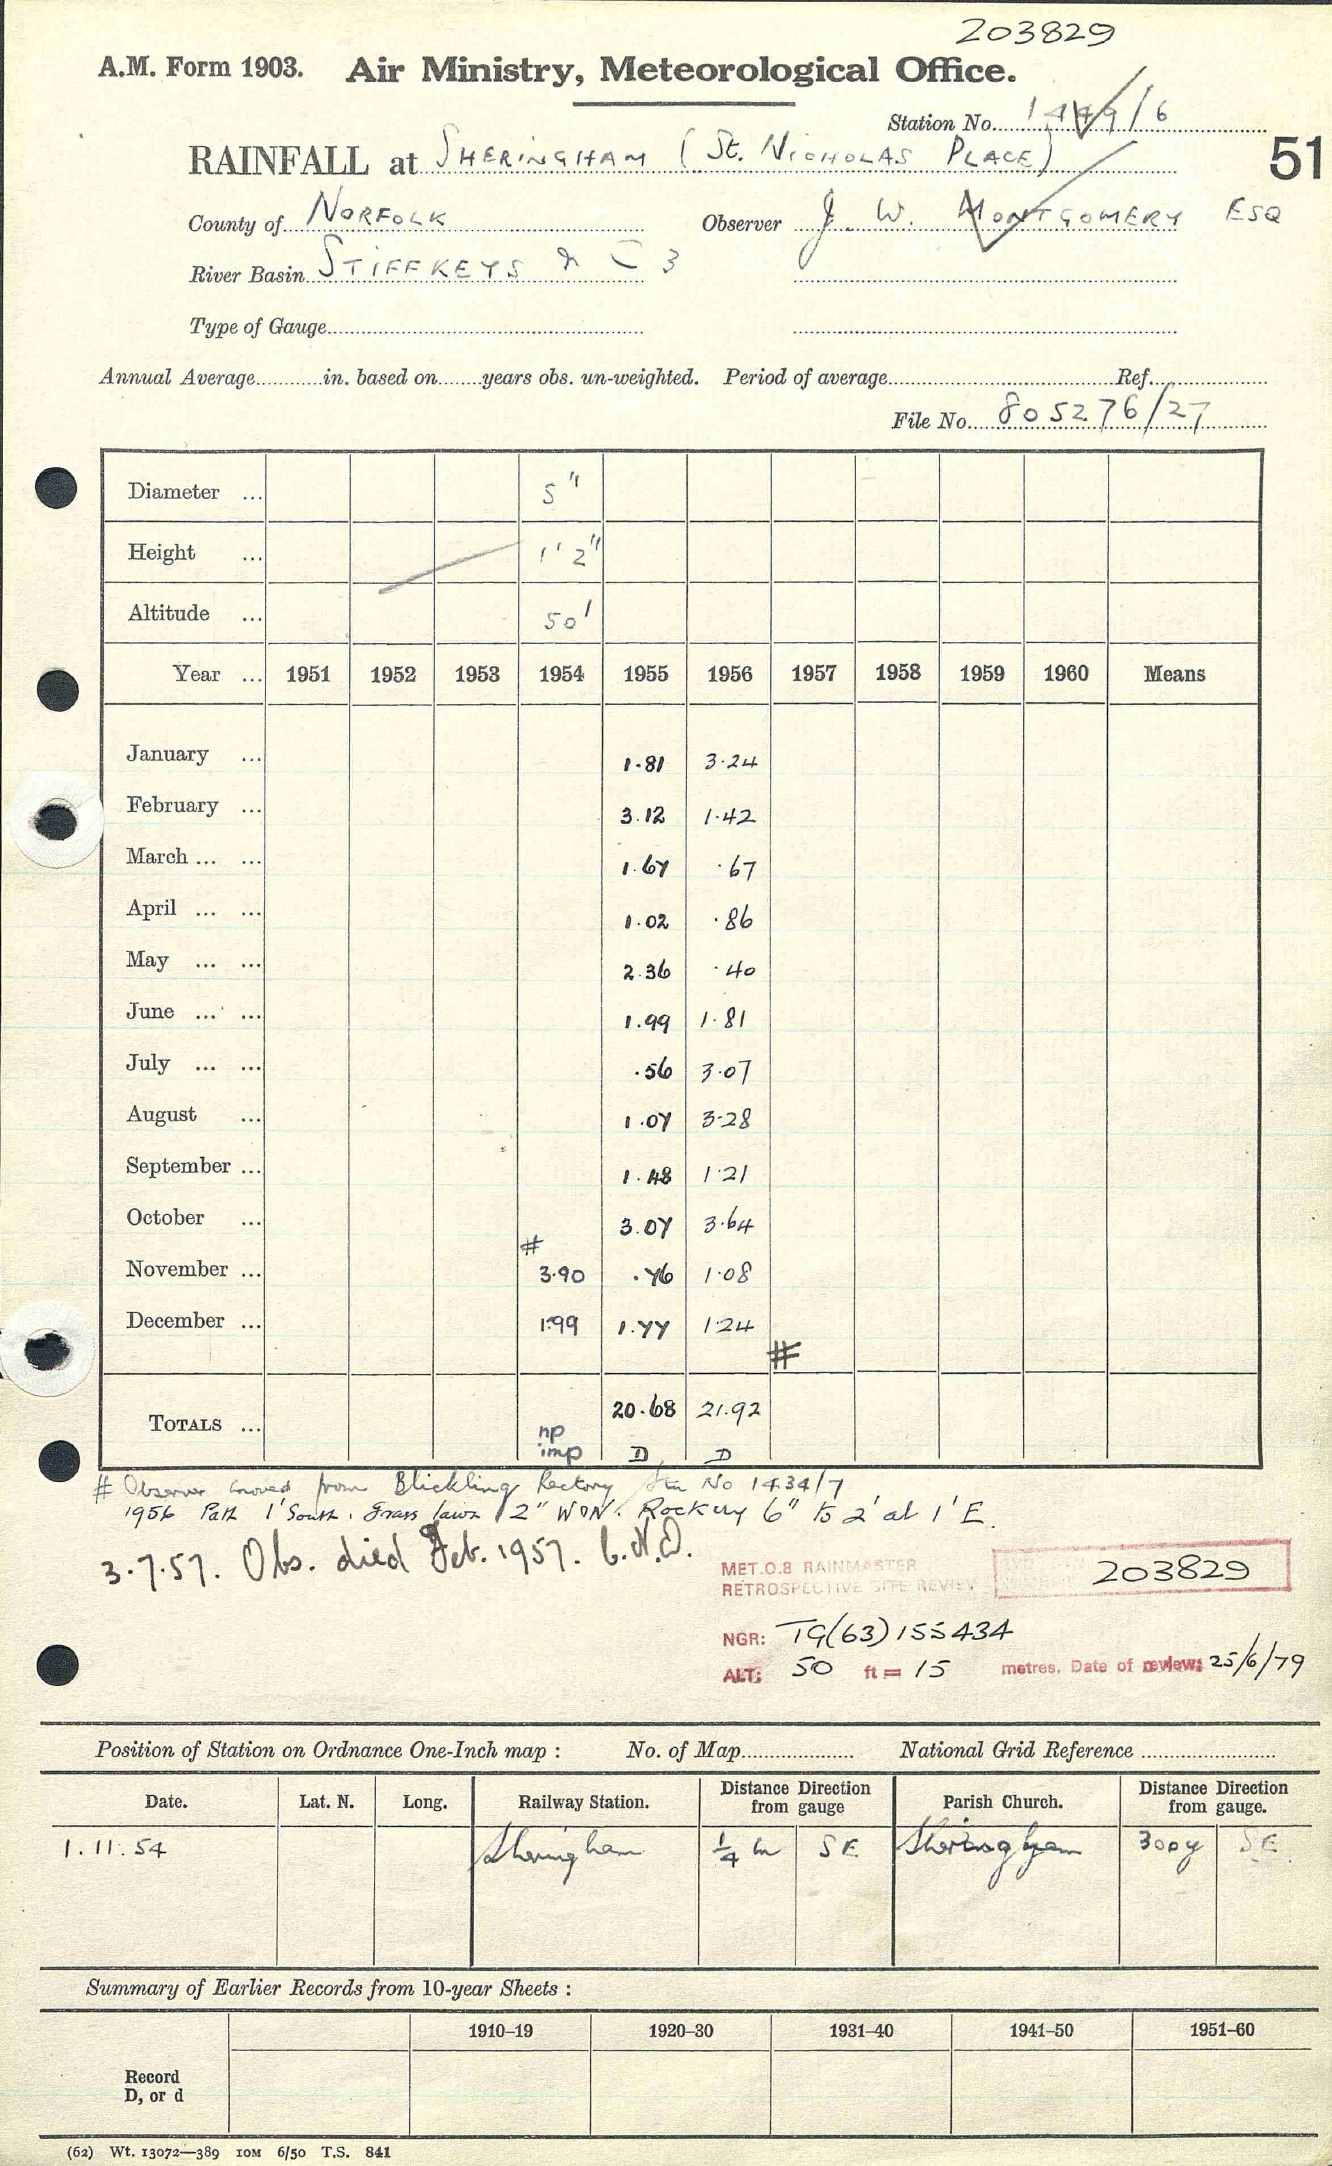 203829
A.M. Form 1903. Air Ministry, Meteorological Office.
Station No. 1449/6
RAINFALL at SHERINGHAM (ST. NICHOLAS PLACE) 51
County of NORFOLK Observer J. W. MONTGOMERY ESQ
River Basin STIFFKEYS & C 3
Type of Gauge
Annual Average in. based on years obs. un-weighted. Period of average Ref.
File No. 805276/27
Diameter ... 5"
Height ... 1' 2"
Altitude ... 50'
Year ... 1951 1952 1953 1954 1955 1956 1957 1958 1959 1960 Means
January ... 1.81 3.24
February ... 3.12 1.42
March ... ... 1.67 .67
April ... ... 1.02 .86
May ... ... 2.36 .40
June ... ... 1.99 1.81
July ... ... .56 3.07
August ... 1.07 3.28
September ... 1.48 1.21
October ... 3.07 3.64
#
November ... 3.90 .76 1.08
December ... 1.99 1.77 1.24
#
TOTALS ... 20.68 21.92
np
imp D D
# Observer moved from Blickling Rectory Stn No 1434/7
1956 Path 1' South. Grass lawn 2" WON. Rockery 6" to 2' at 1' E.
3.7.57. Obs. died Feb. 1957.
MET.O.8 RAINMASTER
RETROSPECTIVE SITE REVIEW 203829
NGR: TG(63)155434
ALT: 50 ft = 15 metres. Date of review: 25/6/79
Position of Station on Ordnance One-Inch map : No. of Map National Grid Reference
Date. Lat. N. Long. Railway Station. Distance Direction from gauge Parish Church. Distance Direction from gauge.
1.11.54 Sheringham 1/4 m SE Sheringham 300y SE
Summary of Earlier Records from 10-year Sheets :
1910–19 1920–30 1931–40 1941–50 1951–60
Record
D, or d
(62) Wt. 13072—389 10M 6/50 T.S. 841